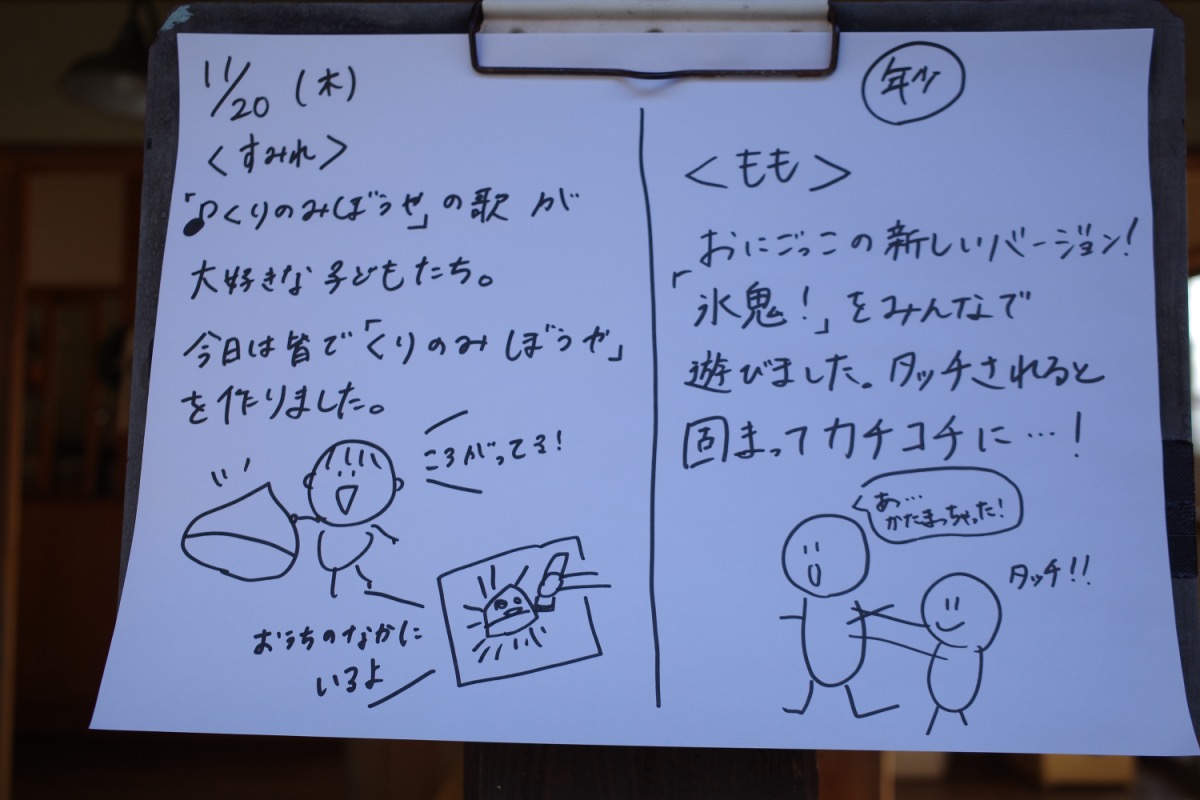 11/20 (木)
<すみれ>
「♪くりのみぼうや」の歌が
大好きな子どもたち。
今日は皆で「くりのみぼうや」
を作りました。
ころがってる!
おうちのなかに
いるよ
年少
<もも>
おにごっこの新しいバージョン!
「氷鬼!」をみんなで
遊びました。タッチされると
固まってカチコチに…!
あっ…
かたまっちゃった!
タッチ!!